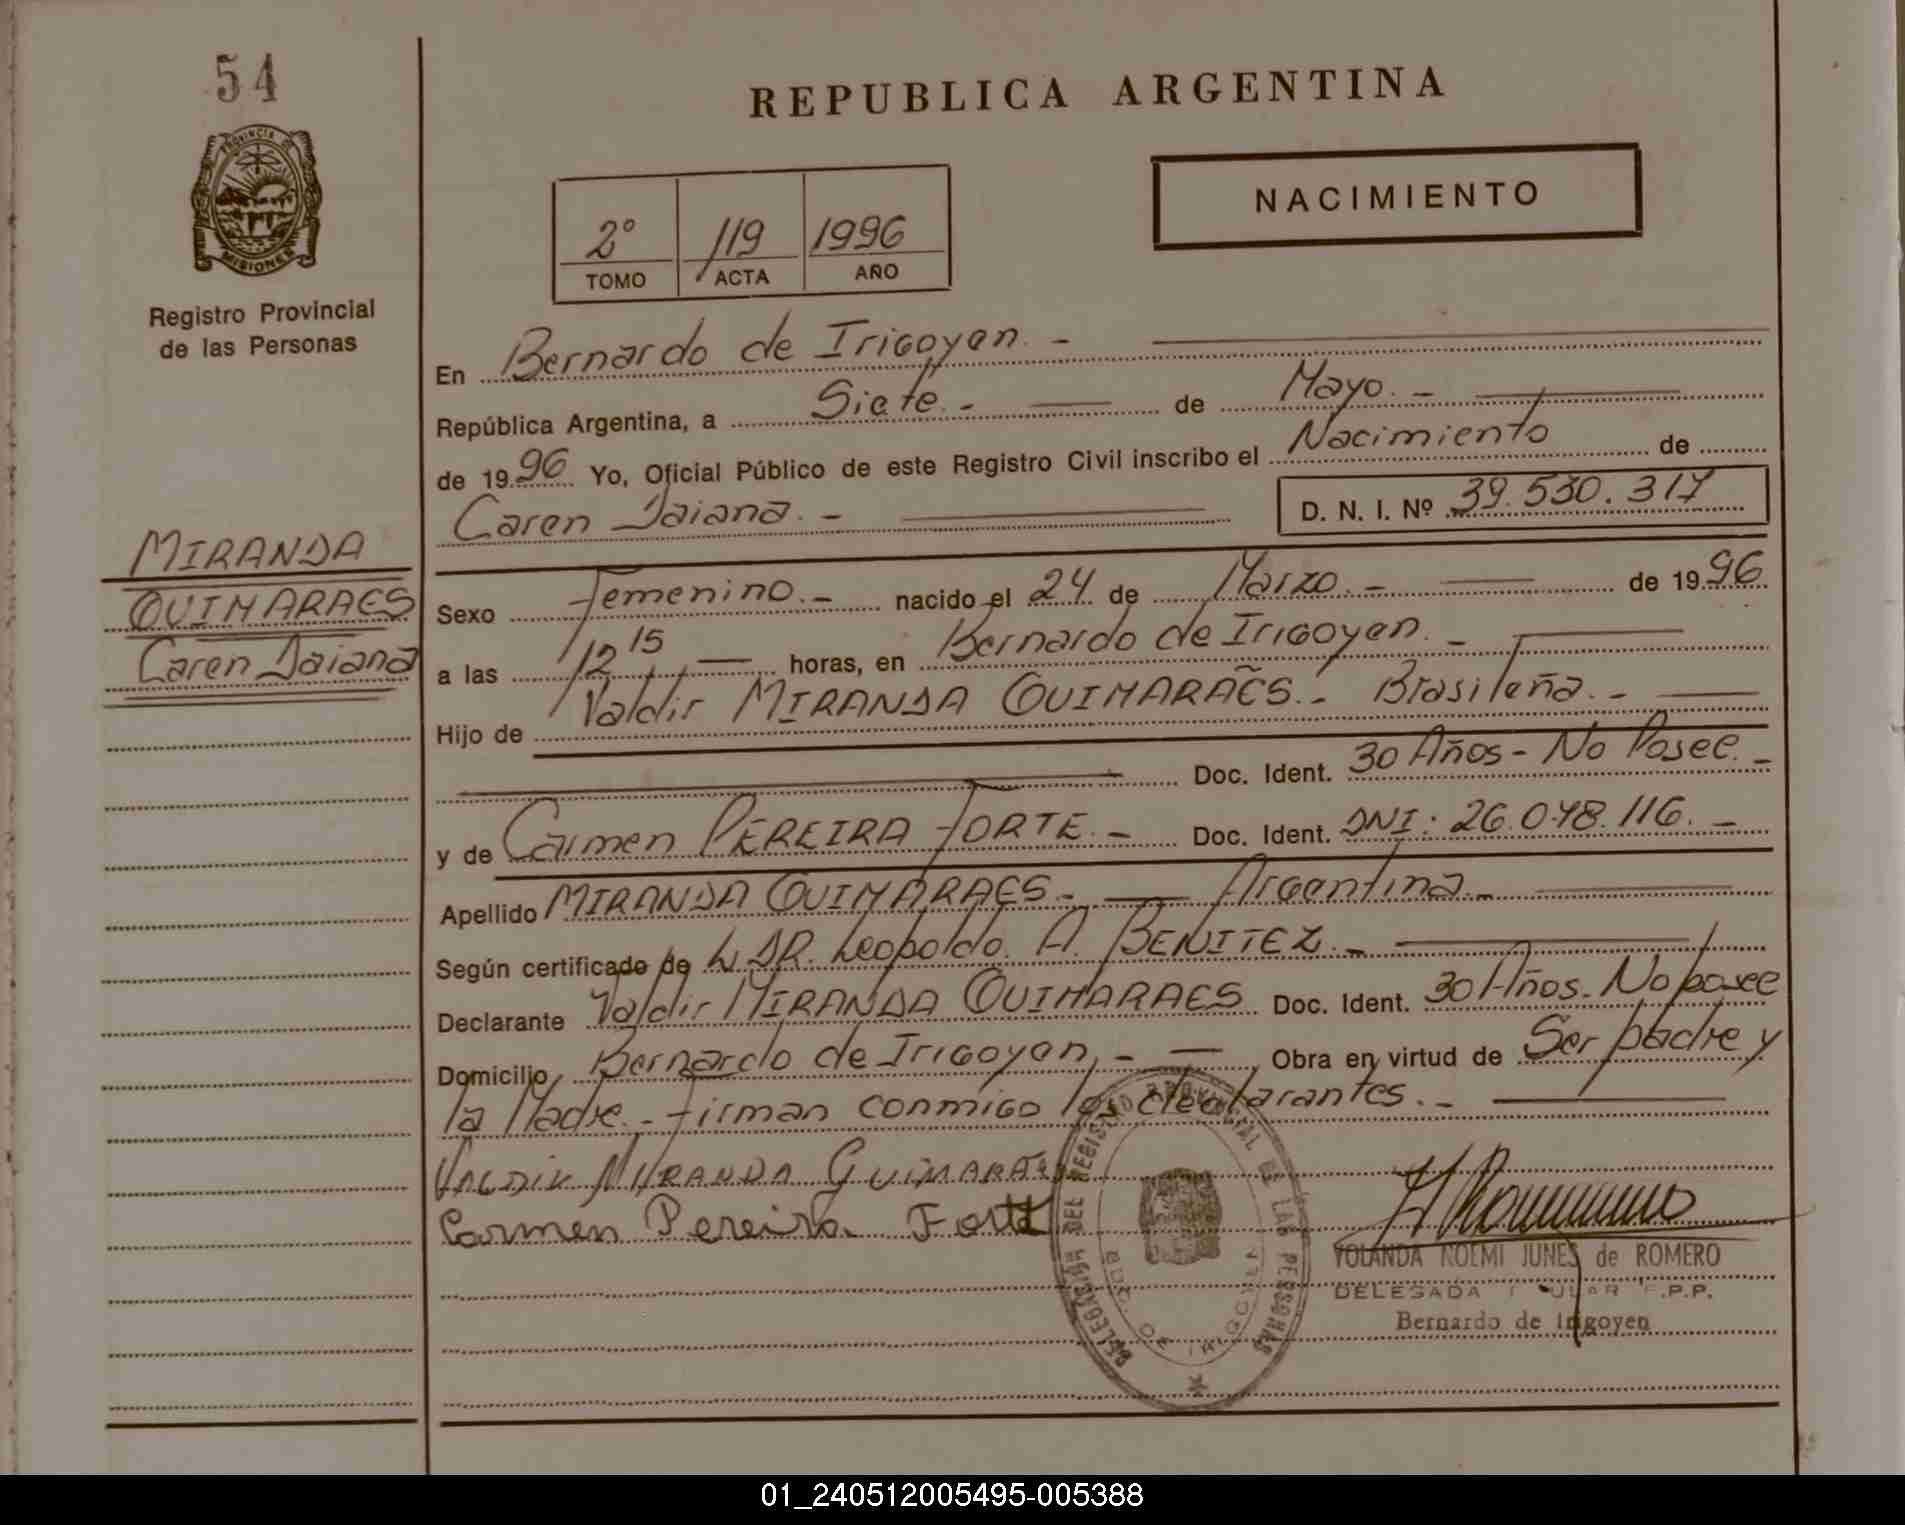 54
REPUBLICA ARGENTINA
PROVINCIA DE
MISIONES
Registro Provincial
de las Personas
NACIMIENTO
2° 119 1996
TOMO ACTA AÑO
En Bernardo de Irigoyen.-
República Argentina, a Siete.- de Mayo.-
de 1996 Yo, Oficial Público de este Registro Civil inscribo el Nacimiento de
Caren Daiana.- D. N. I. Nº 39.530.317
MIRANDA
GUIMARAES
Caren Daiana
Sexo Femenino.- nacido el 24 de Marzo.- de 1996
a las 12 15 horas, en Bernardo de Irigoyen.-
Hijo de Valdir MIRANDA GUIMARAẼS.- Brasileña.-
Doc. Ident. 30 Años - No Posee.-
y de Carmen PEREIRA FORTE.- Doc. Ident. DNI: 26.048.116.-
Apellido MIRANDA GUIMARAES.- Argentina.-
Según certificado de DR. Leopoldo A. BENITEZ.-
Declarante Valdir MIRANDA GUIMARAES Doc. Ident. 30 Años. No posee
Domicilio Bernardo de Irigoyen,- Obra en virtud de Ser padre y
la Madre.- Firman conmigo los declarantes.-
VALDIR MIRANDA GUIMARAES
Carmen Pereira Forte
DELEGACION DEL REGISTRO PROVINCIAL DE LAS PERSONAS
BDO. DE IRIGOYEN
YOLANDA NOEMI JUNES de ROMERO
DELEGADA R.P.P.
Bernardo de Irigoyen
01_240512005495-005388